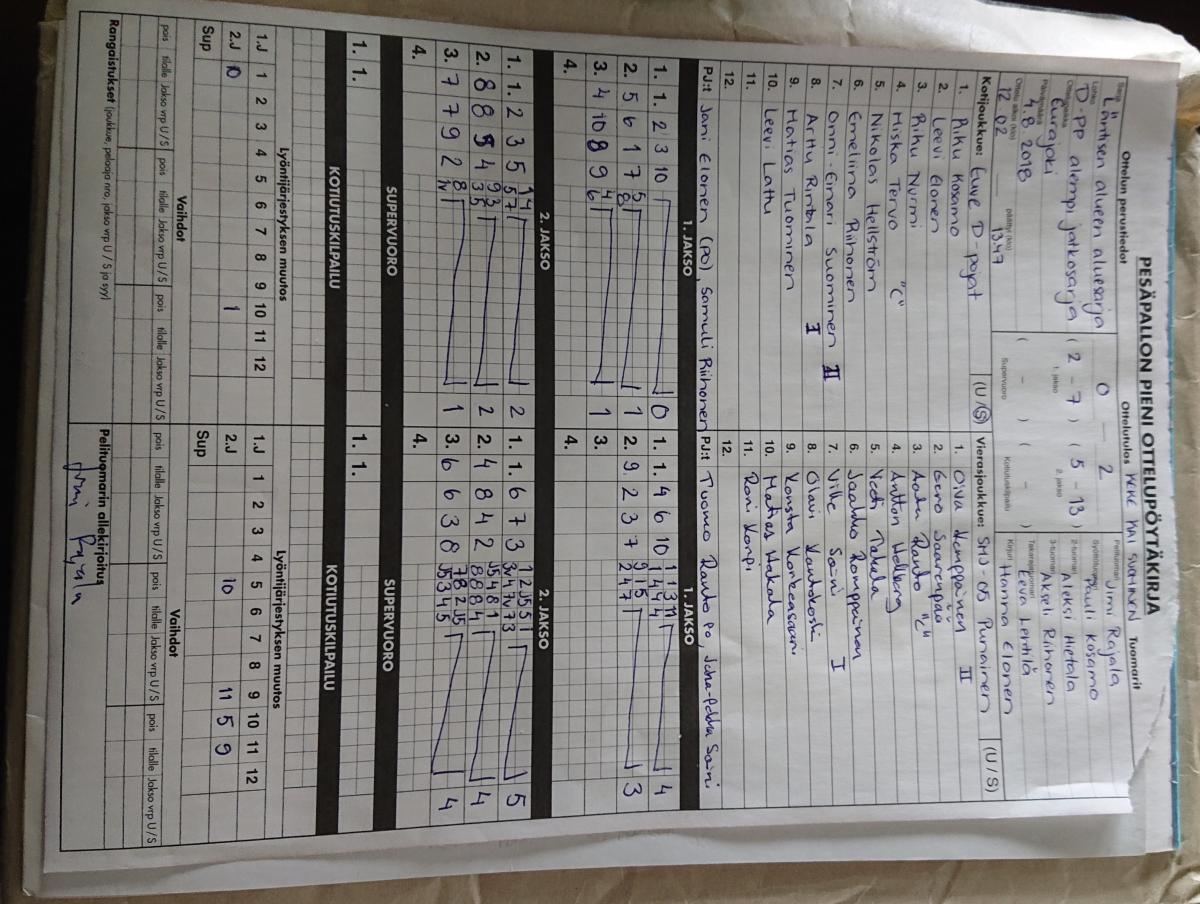 PESÄPALLON PIENI OTTELUPÖYTÄKIRJA
Ottelun perustiedot
Sarja
Läntisen alueen aluesarja
Lohko
D-PP alempi jatkosarja
Ottelupaikka
Eurajoki
Päivämäärä
4.8.2018
Ottelu alkoi (klo) päättyi (klo)
12.02 — 13.47
Ottelutulos
0 — 2
( 2 - 7 ) ( 5 - 13 )
1. jakso 2. jakso
( - ) ( - )
Supervuoro Kotiutuskilpailu
Tuomarit
Pelituomari Jimi Rajala
Syöttötuomari Pauli Kosamo
2-tuomari Aleksi Hietala
3-tuomari Akseli Riihonen
Takarajatuomari Eeva Lehtilä
Kirjuri Hanna Elonen
Kotijoukkue: Euve D-pojat (U/S)
1. Riku Kosamo
2. Leevi Elonen
3. Riku Nurmi
4. Miska Tervo "C"
5. Nikolas Hellström
6. Emeliina Riihonen
7. Onni-Einari Suominen II
8. Arttu Rintala I
9. Matias Tuominen
10. Leevi Lattu
11.
12.
PJ:t Jani Elonen (po), Samuli Riihonen
Vierasjoukkue: SMJ-05 Punainen (U/S)
1. Oiva Kemppainen II
2. Eero Saarenpää
3. Aatu Rauto "C"
4. Antton Hellberg
5. Veeti Takala
6. Jaakko Romppainen
7. Ville Saini I
8. Olavi Kautokoski
9. Konsta Korkeasaari
10. Matias Hakala
11. Roni Korpi
12.
PJ:t Tuomo Rauto po, Juha-Pekka Saini
1. JAKSO
1. 1. 2 3 10 0
2. 5 6 1 7 1
3. 4 10 8 9 1
4.
1. JAKSO
1. 1. 4 6 10 4
2. 9 2 3 7 3
3.
4.
2. JAKSO
1. 1. 2 3 5 2
2. 8 8 5 4 2
3. 7 7 9 2 1
4.
2. JAKSO
1. 1. 6 7 3 5
2. 4 8 4 2 4
3. 6 6 3 8 4
4.
SUPERVUORO
1. 1.
SUPERVUORO
1. 1.
KOTIUTUSKILPAILU
KOTIUTUSKILPAILU
Lyöntijärjestyksen muutos
1.J 1 2 3 4 5 6 7 8 9 10 11 12
2.J 10 1
Sup
Lyöntijärjestyksen muutos
1.J 1 2 3 4 5 6 7 8 9 10 11 12
2.J 10 11 5 9
Sup
Vaihdot
pois tilalle Jakso vrp U/S pois tilalle Jakso vrp U/S pois tilalle Jakso vrp U/S
Vaihdot
pois tilalle Jakso vrp U/S pois tilalle Jakso vrp U/S pois tilalle Jakso vrp U/S
Rangaistukset (joukkue, pelaaja nro, jakso vrp U / S ja syy)
Pelituomarin allekirjoitus